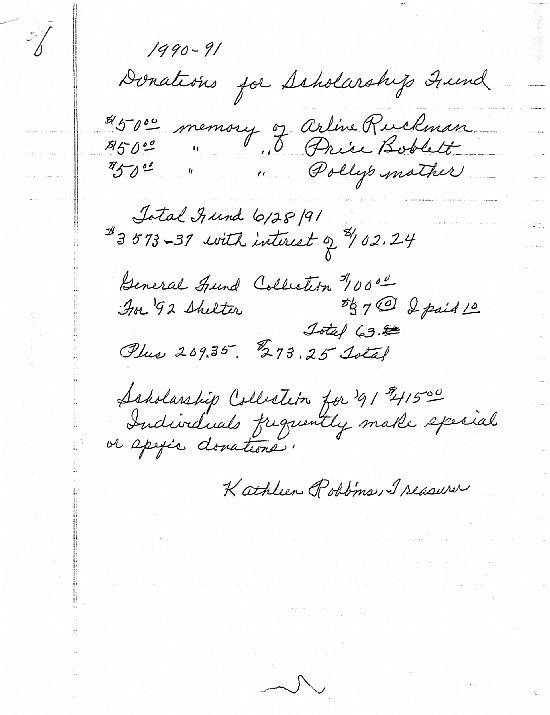 1990-91
Donations for Scholarships Fund
$50.00 memory of Arline Ruckman
$50.00 " " Price Boblett
$50.00 " " Polly's mother
Total Fund 6/28/91
$3573-37 with interest of $102.24
General Fund Collection $100.00
For '92 Shelter $37 10 I paid 10
Total 63.
Plus 209.35. $273.25 Total
Scholarship Collection for '91 $415.00
Individuals frequently make special
or spefic donations.
Kathleen Robbins, Treasurer